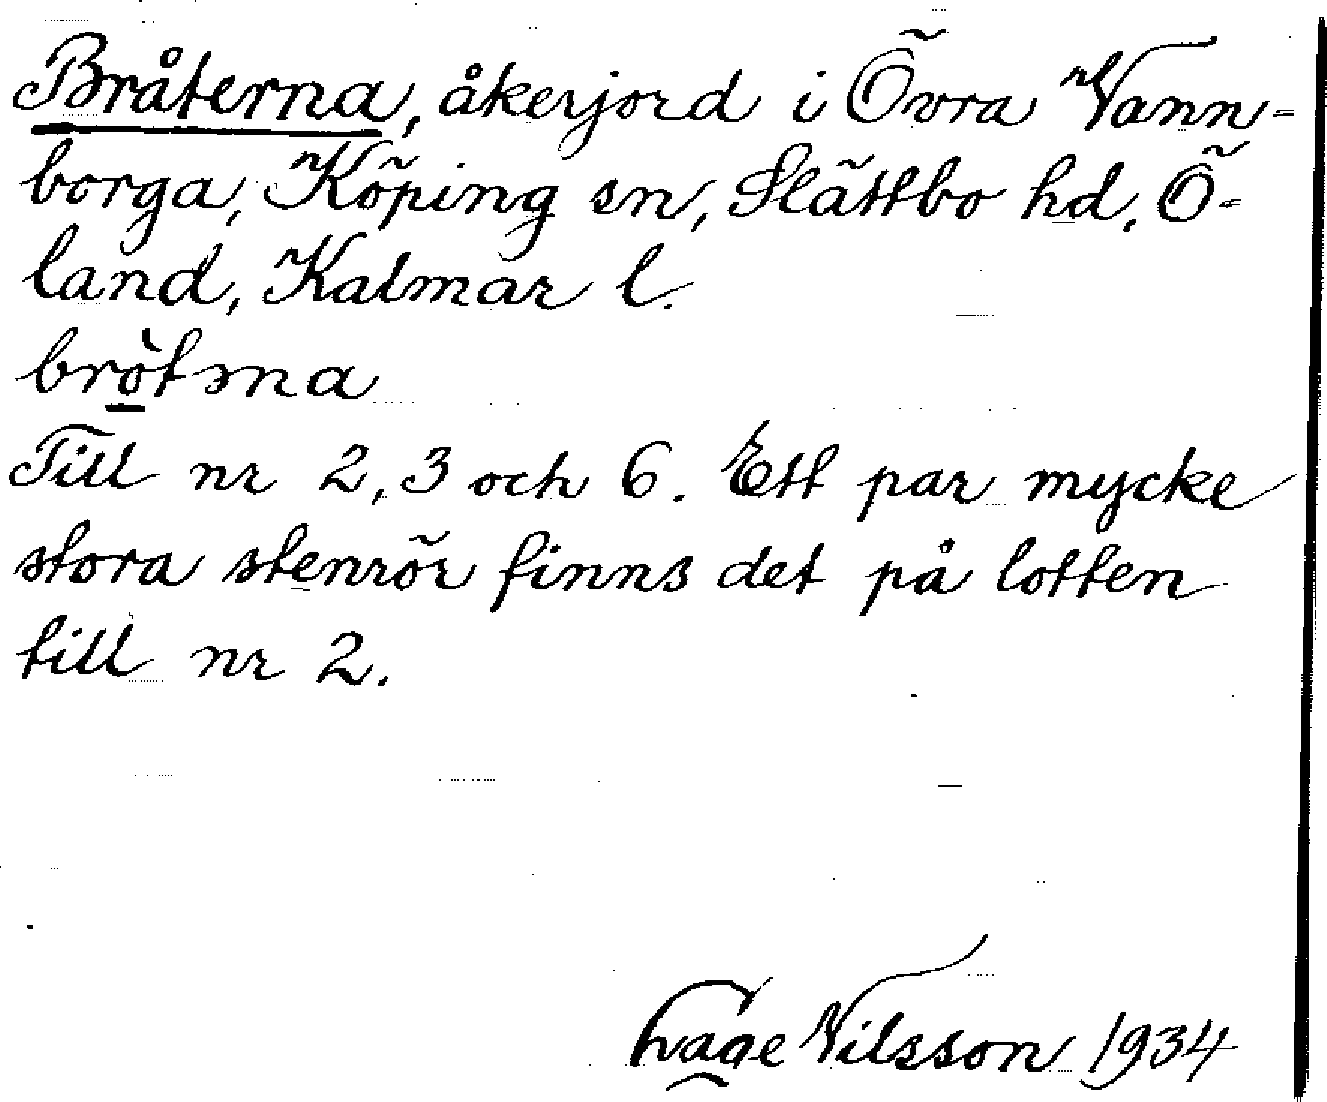 Bråterna, åkerjord i Övra Vann-
borga, Köping sn, Slättbo hd, Ö-
land, Kalmar l.
brò̱tərna
Till nr 2, 3 och 6. Ett par mycke
stora stenrör finns det på lotten
till nr 2.
Hage Nilsson 1934